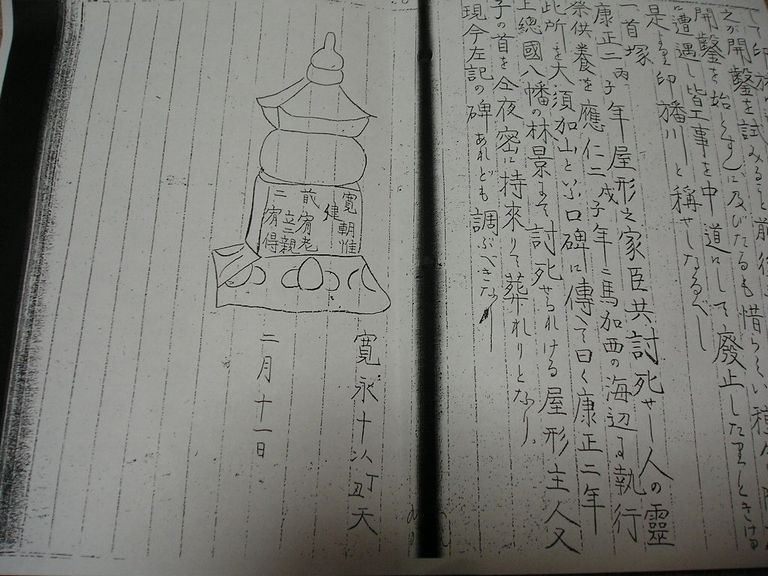 して印旛
之が開鑿を試みると前後
開鑿を始
に遭遇し皆工事を中道にして廃止したり
是より印旛川と稱せしなるべし
一首塚
康正二丙子年屋形之家臣共討死せし人の靈
祭供養を應仁二戊子年ニ馬加西の海辺ニ執行
此所を大須加山といふ口碑に傳へて曰く康正二年
上總國八幡の林景にて討死せられける屋形主人父
子の首を仝夜密に持來りて葬れりとなり
現今左記の碑あれども調ぶべきなし
寛朝惟
健
前宥老
立二親
二宥得
寛永十
丁丑天
二月十一日